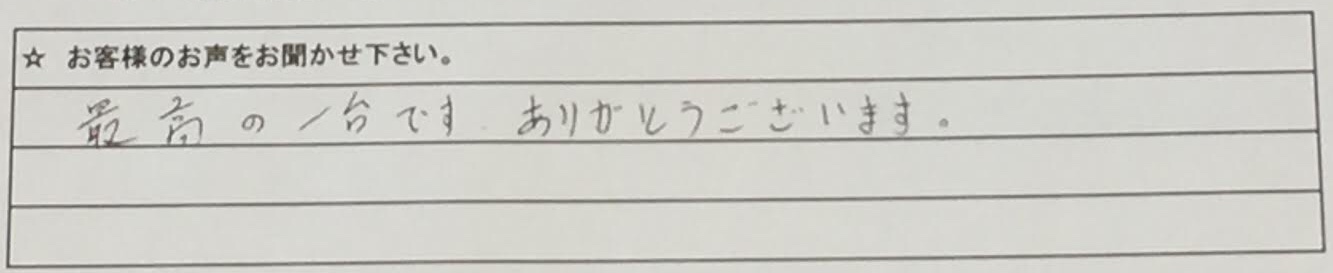 ☆ お客様のお声をお聞かせ下さい。
最高の一台です ありがとうございます。